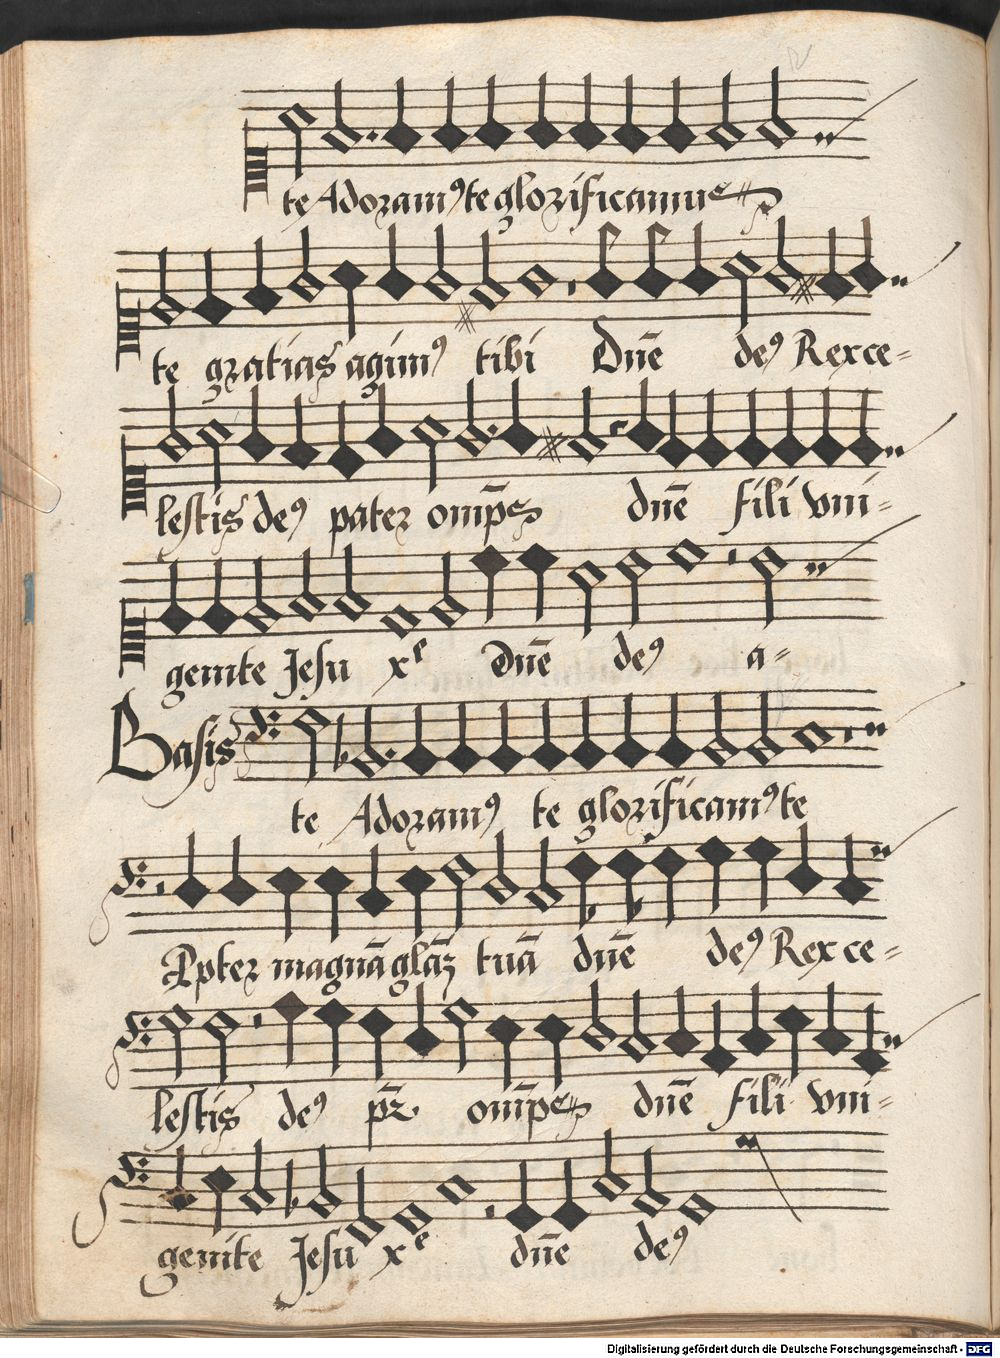 te Adoram⁹ te glorificamus
te gratias agim⁹ tibi Dn̄e de⁹ Rex ce=
lestis de⁹ pater om̄ps dn̄e fili vni=
genite Jesu xͤ Dn̄e de⁹ a=
Basis
te Adoram⁹ te glorificam⁹ te
Ppter magnā gl̄az tuā dn̄e de⁹ Rex ce=
lestis de⁹ pr̄ om̄pes dn̄e fili vni=
genite Jesu xͤ dn̄e de⁹
Digitalisierung gefördert durch die Deutsche Forschungsgemeinschaft - DFG